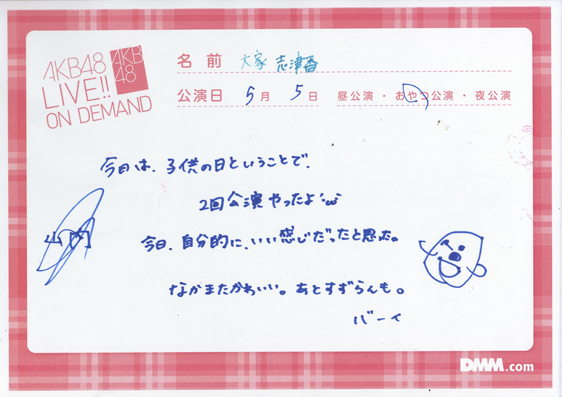 AKB48
LIVE!!
ON DEMAND
AKB
48
名前 大家 志津香
公演日 5月 5日 昼公演・おやつ公演・夜公演
今日は、子供の日ということで、
2回公演やったよ
今日、自分的に、いい感じだったと思う。
なかまたかわいい。あとすずらんも。
バーイ
DMM.com